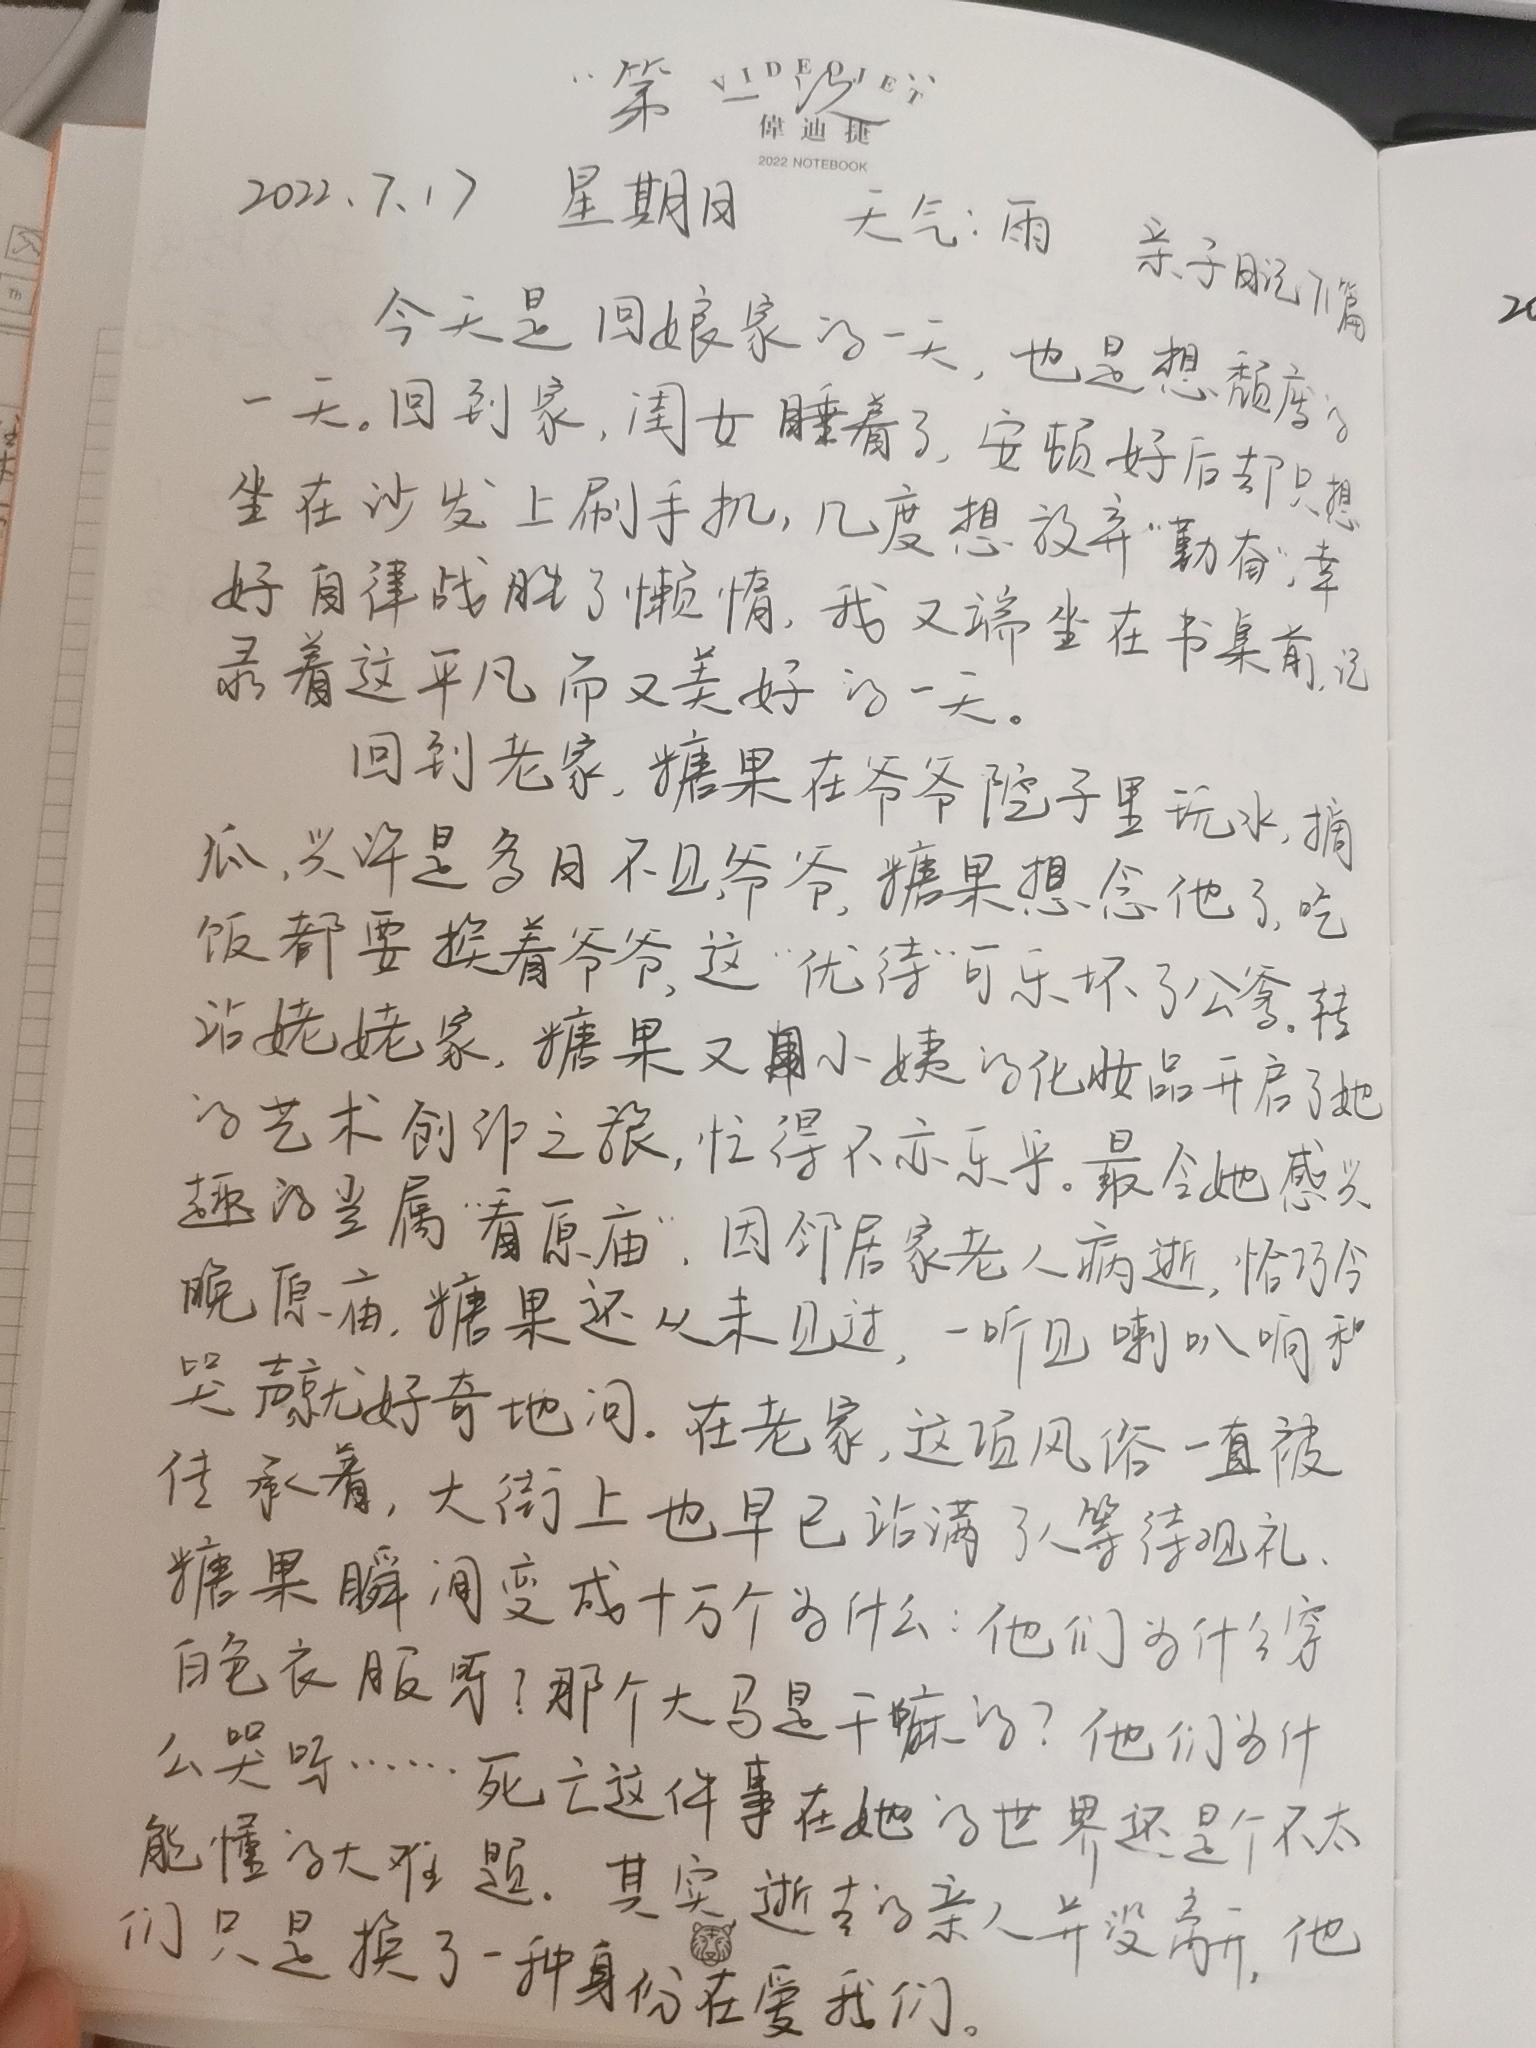 VIDEOJET
偉迪捷
2022 NOTEBOOK
“第一次”
2022.7.17 星期日 天气:雨 亲子日记71篇
今天是回娘家的一天,也是想颓废的
一天。回到家,闺女睡着了,安顿好后却只想
坐在沙发上刷手机,几度想放弃“勤奋”,幸
好自律战胜了懒惰,我又端坐在书桌前,记
录着这平凡而又美好的一天。
回到老家,糖果在爷爷院子里玩水,摘
瓜,兴许是多日不见爷爷,糖果想念他了,吃
饭都要挨着爷爷,这“优待”可乐坏了公爹。转
站姥姥家,糖果又用小姨的化妆品开启了她
的艺术创作之旅,忙得不亦乐乎。最令她感兴
趣的当属“看原庙”,因邻居家老人病逝,恰巧今
晚原庙,糖果还从未见过,一听见喇叭响和
哭声就好奇地问。在老家,这项风俗一直被
传承着,大街上也早已站满了人等待观礼、
糖果瞬间变成十万个为什么:他们为什么穿
白色衣服呀?那个大马是干嘛的?他们为什
么哭呀……死亡这件事在她的世界还是个不太
能懂的大难题。其实逝去的亲人并没离开,他
们只是换了一种身份在爱我们。